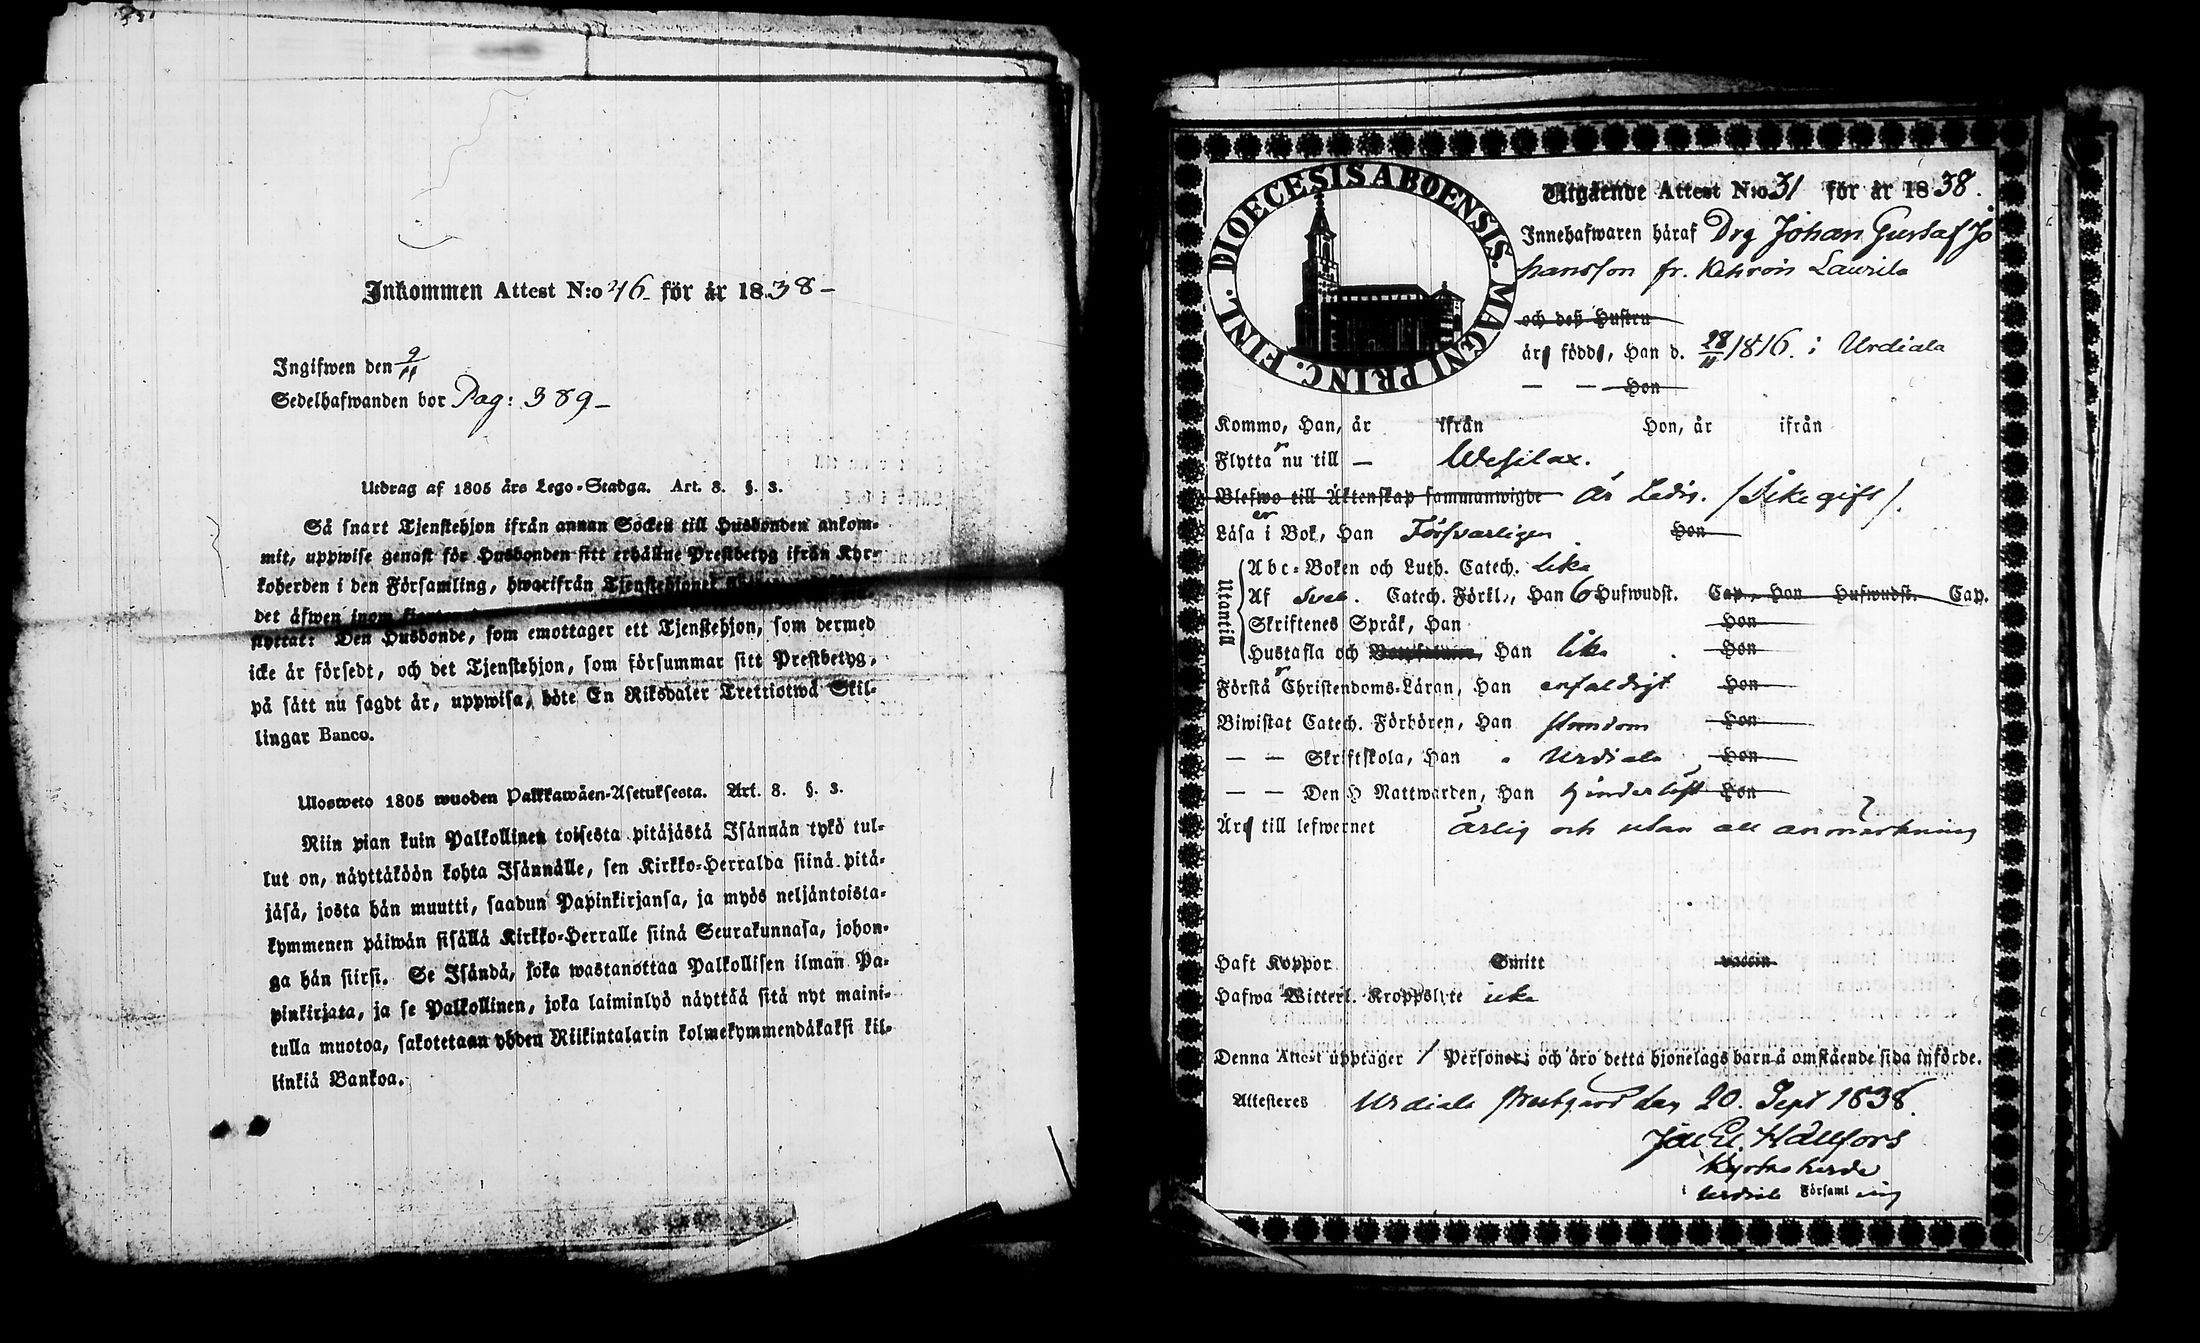 Inkommen Attest N:o 46 för år 1838 –
Ingifwen den 9/11
Sedelhafwanden bor Pag: 389 –
Utdrag af 1805 års Lego-Stadga. Art. 8. §. 3.
Så snart Tjenstehjon ifrån annan Socken till Husbonden ankom-
mit, uppwise genast för Husbonden sitt erhållne Prestbetyg ifrån Kyr-
koherden i den Församling, hwarifrån Tjenstehjonet
det äfwen inom
flyttat: Den Husbonde, som emottager ett Tjenstehjon, som dermed
icke är försedt, och det Tjenstehjon, som försummar sitt Prestbetyg,
på sätt nu sagdt är, uppwisa, böte En Riksdaler Trettiotwå Skil-
lingar Banco.
Ulosweto 1805 wuoden Palkkawäen-Asetuksesta. Art. 8. §. 3.
Niin pian kuin Palkollinen toisesta pitäjästä Isännän tykö tul-
lut on, näyttäköön kohta Isännälle, sen Kirkko-Herralda siinä pitä-
jäsä, josta hän muutti, saadun Papinkirjansa, ja myös neljäntoista-
kymmenen päiwän sisällä Kirkko-Herralle siinä Seurakunnasa, johon-
ga hän siirsi. Se Isändä, joka wastanottaa Palkollisen ilman Pa-
pinkirjata, ja se Palkollinen, joka laiminlyö näyttää sitä nyt maini-
tulla muotoa, sakotetaan yhden Riikintalarin kolmekymmendäkaksi kil-
linkiä Bankoa.
DIOECESIS ABOENSIS. MAGNI PRINC. FINL.
Utgående Attest N:o 31 för år 1838.
Innehafwaren häraf Drg Johan Gustaf Jo
hansson fr. Laurila
och deß Hustru
är född, Han d. 28/11 1816. i Urdiala
— — Hon
Kommo, Han, år ifrån Hon, år ifrån
Flyttar nu till — Wesilax.
Blefwo till Äktenskap sammanwigde är Ledig. (Icke gift).
Läser i Bok, Han Försvarligen Hon
Utantill
Abc-Boken och Luth. Catech. lika
Af Sveb. Catech. Förkl., Han 6 Hufwudst. Cap., Hon Hufwudst. Cap.
Skriftenes Språk, Han Hon
Hustafla och Han lika Hon
Förstår Christendoms-Läran, Han enfaldigt Hon
Biwistat Catech. Förhören, Han stundom Hon
— — Skriftskola, Han Urdiala Hon
— — Den H Nattwarden, Han hinderlöst Hon
Är till lefwernet ärlig och utan all anmärkning
Haft Koppor Smitt vaccin
Hafwa Witterl. Kroppslyte icke
Denna Attest upptager 1 Personer; och äro detta hjonelags barn å omstående sida införde.
Attesteres Urdiala Prestgård den 20. Sept 1838.
Hällfors
Kyrkoherde
i Urdiala Församling